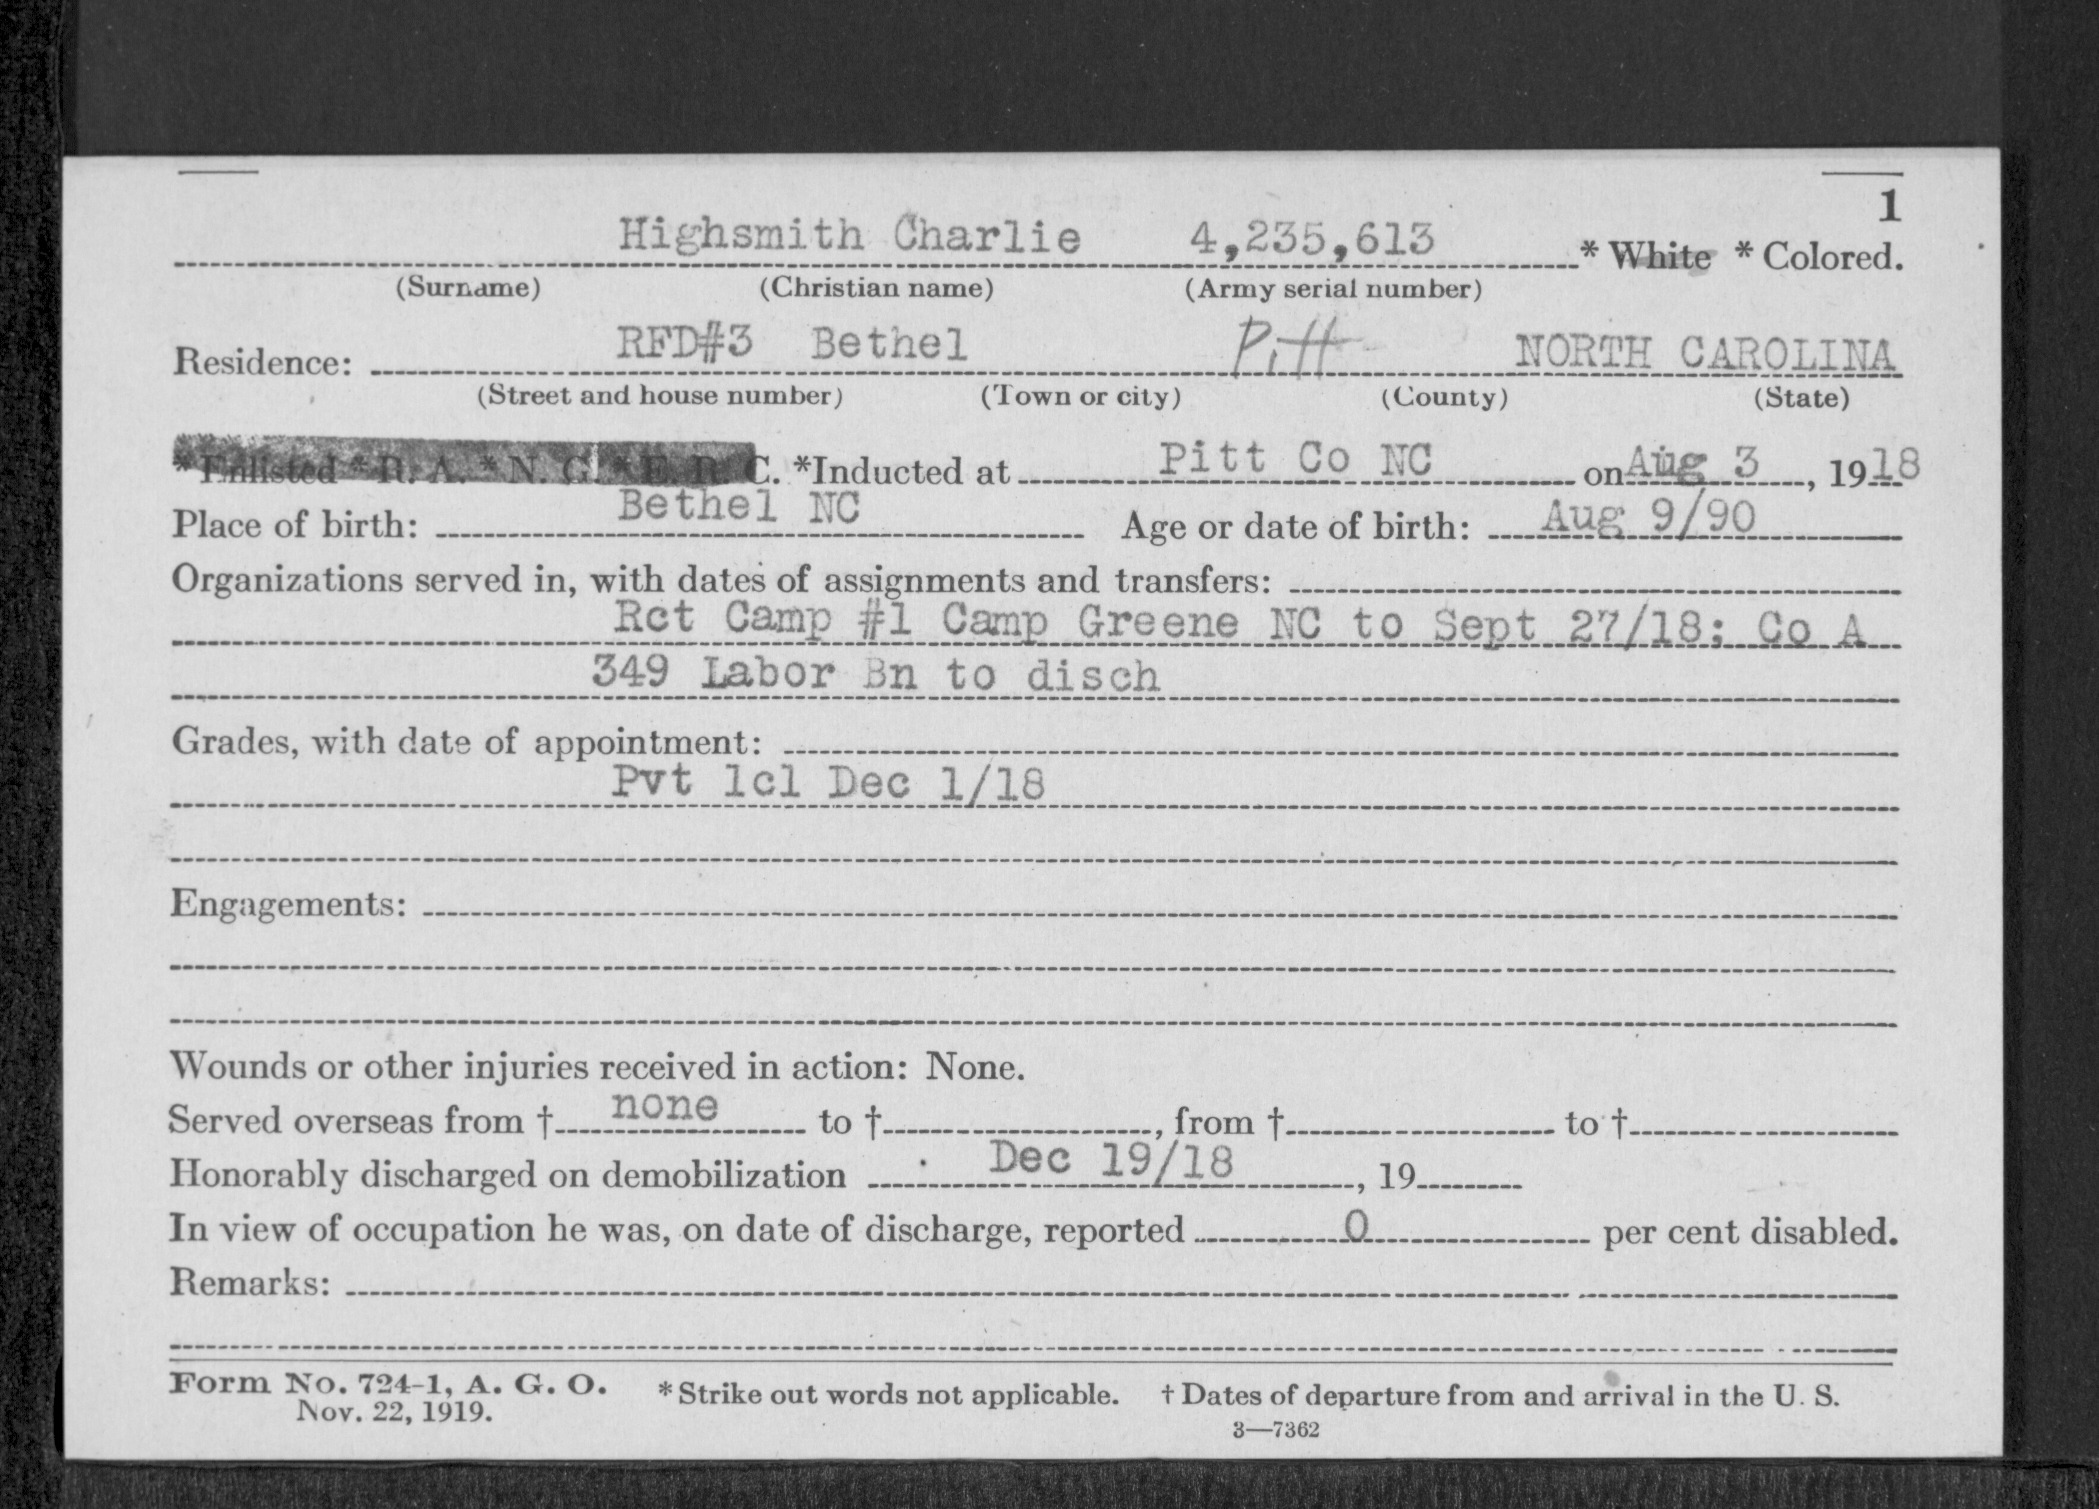 1
Highsmith Charlie 4,235,613 * White * Colored.
(Surname) (Christian name) (Army serial number)
Residence: RFD#3 Bethel Pitt NORTH CAROLINA
(Street and house number) (Town or city) (County) (State)
*Enlisted *R. A. *N. G. *E. R. C. *Inducted at Pitt Co NC on Aug 3, 1918
Place of birth: Bethel NC Age or date of birth: Aug 9/90
Organizations served in, with dates of assignments and transfers:
Rct Camp #1 Camp Greene NC to Sept 27/18; Co A
349 Labor Bn to disch
Grades, with date of appointment:
Pvt 1cl Dec 1/18
Engagements:
Wounds or other injuries received in action: None.
Served overseas from † none to †, from † to †
Honorably discharged on demobilization Dec 19/18, 19
In view of occupation he was, on date of discharge, reported 0 per cent disabled.
Remarks:
Form No. 724-1, A. G. O. * Strike out words not applicable. † Dates of departure from and arrival in the U. S.
Nov. 22, 1919.
3—7362